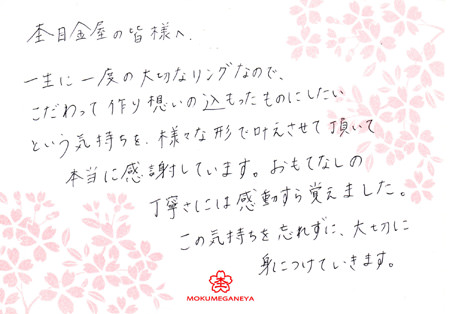 杢目金屋の皆様へ
一生に一度の大切なリングなので、
こだわって作り想いの込もったものにしたい
という気持ちを、様々な形で叶えさせて頂いて
本当に感謝しています。おもてなしの
丁寧さには感動すら覚えました。
この気持ちを忘れずに、大切に
身につけていきます。
杢
MOKUMEGANEYA